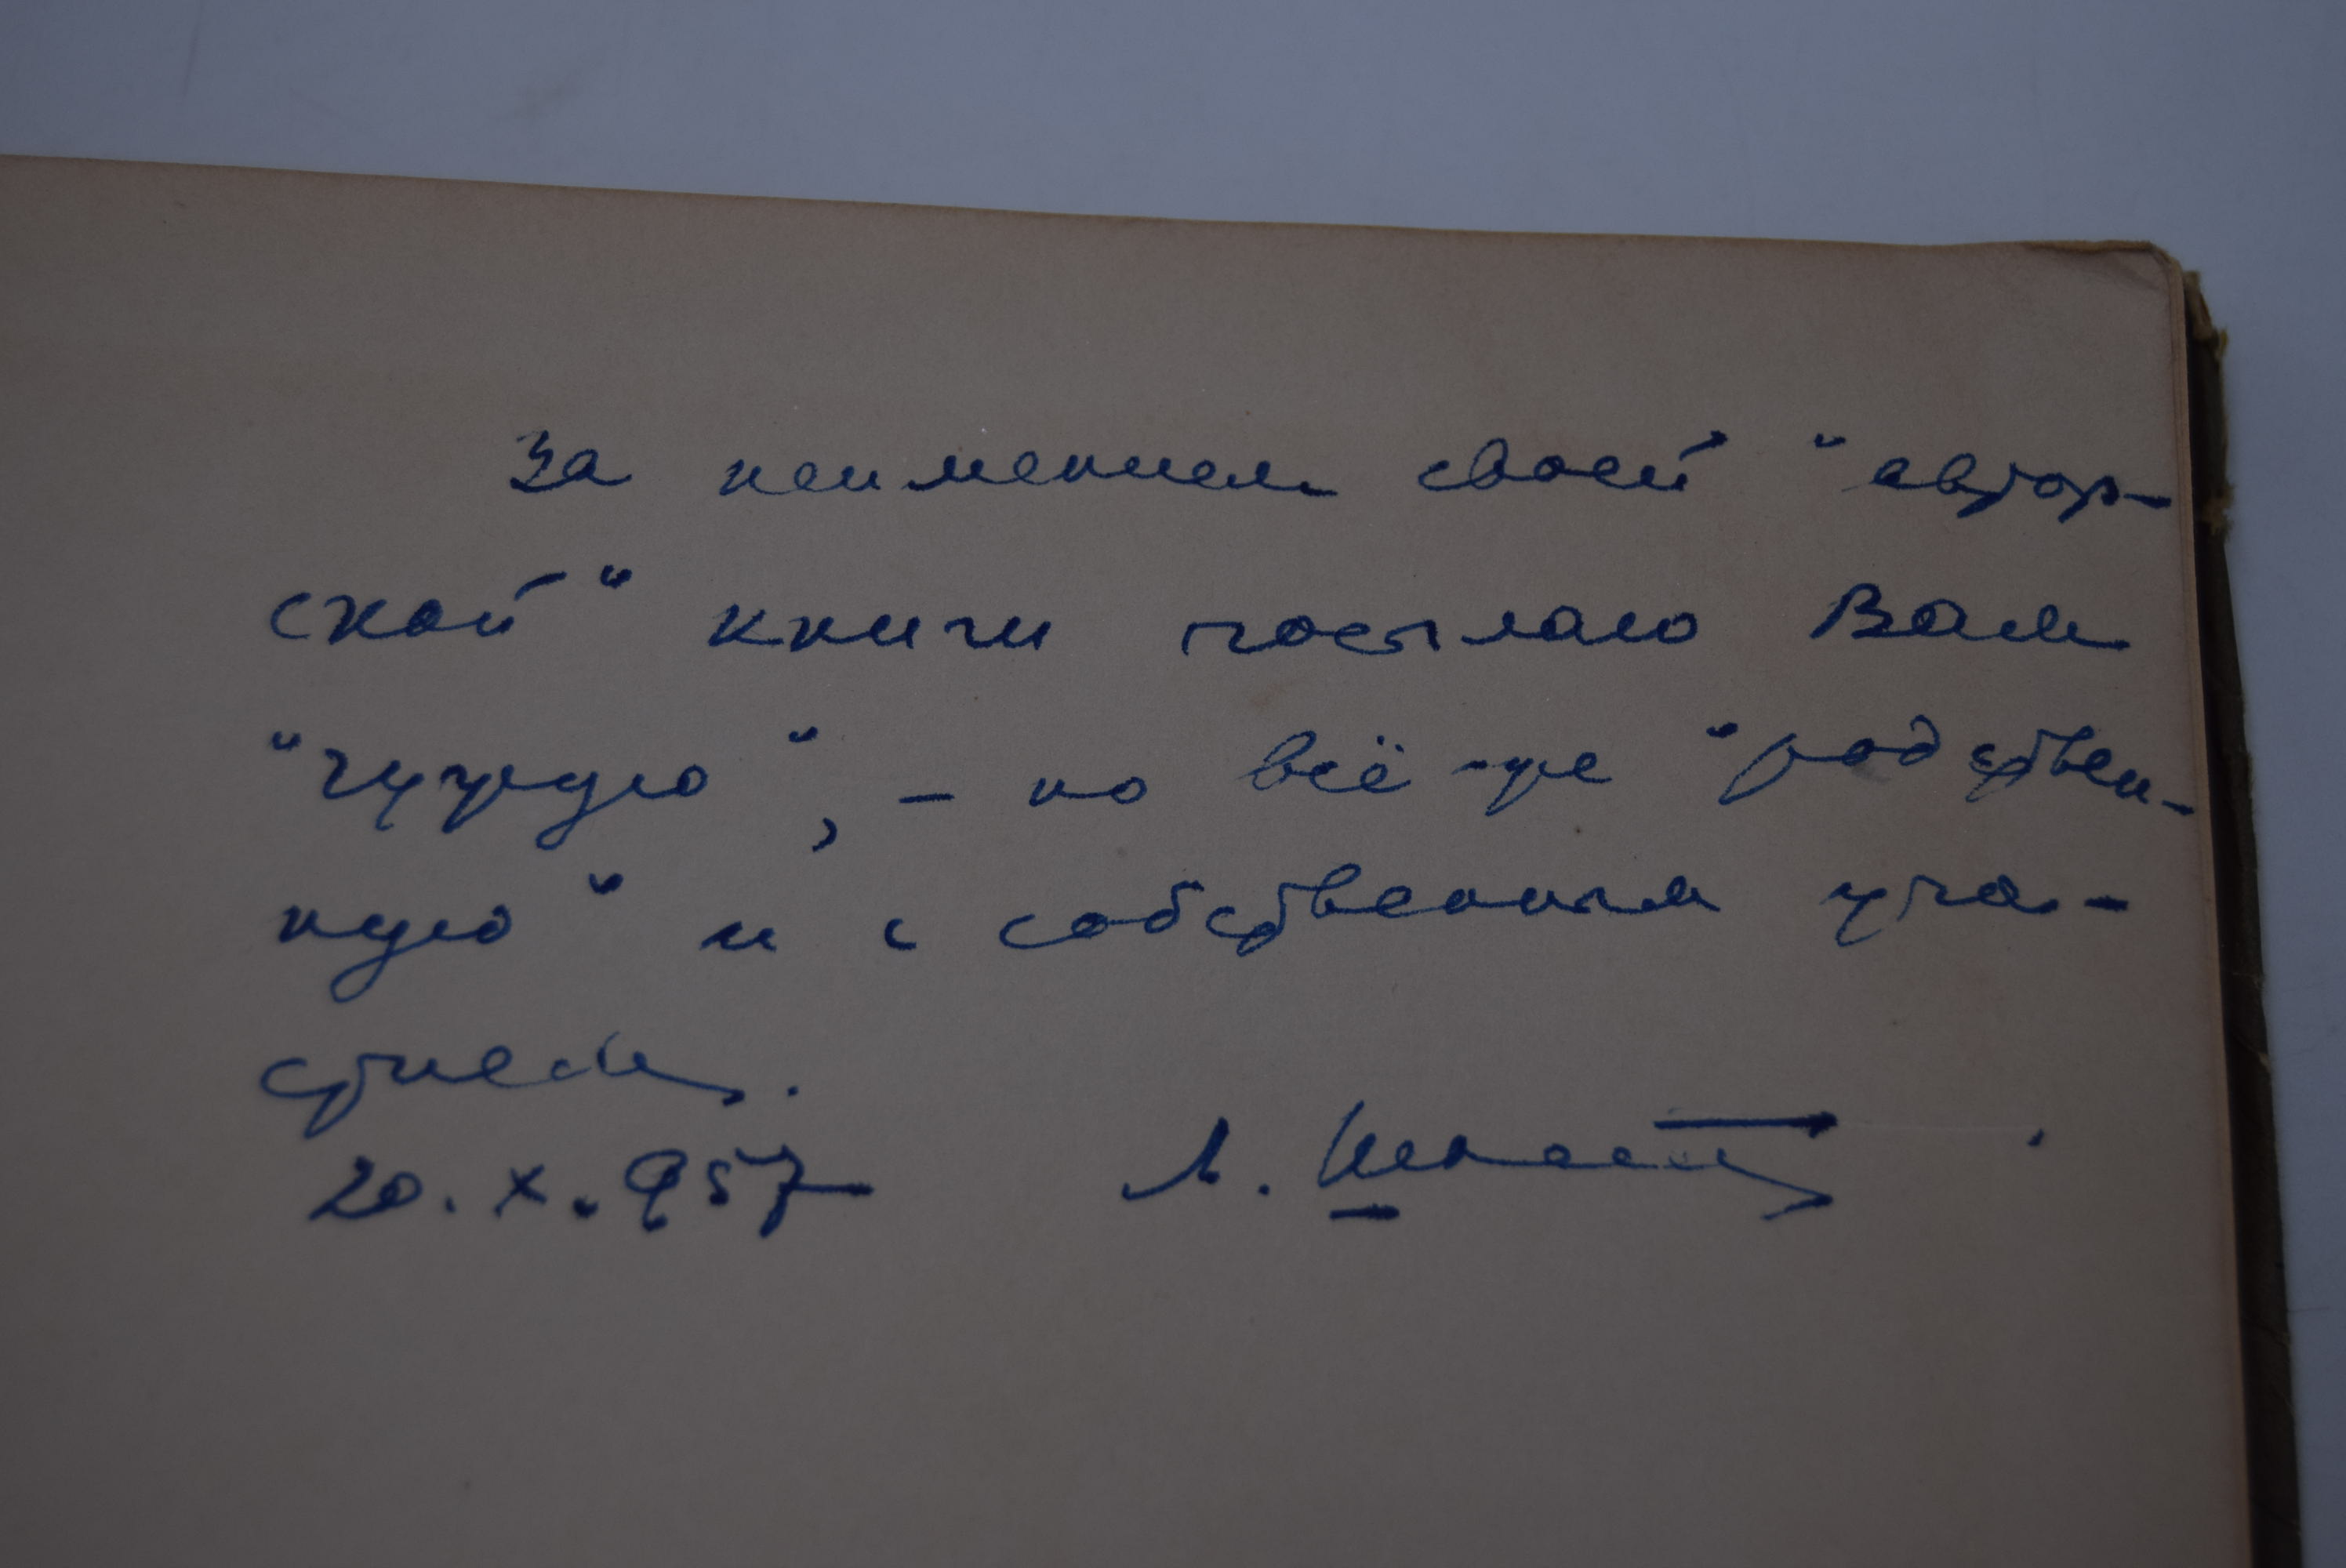 За неимением своей "автор-
ской" книги посылаю Вам
"чужую", – но всё же "родствен-
ную" и с собственным уча-
стием.
20.X.957 Л.